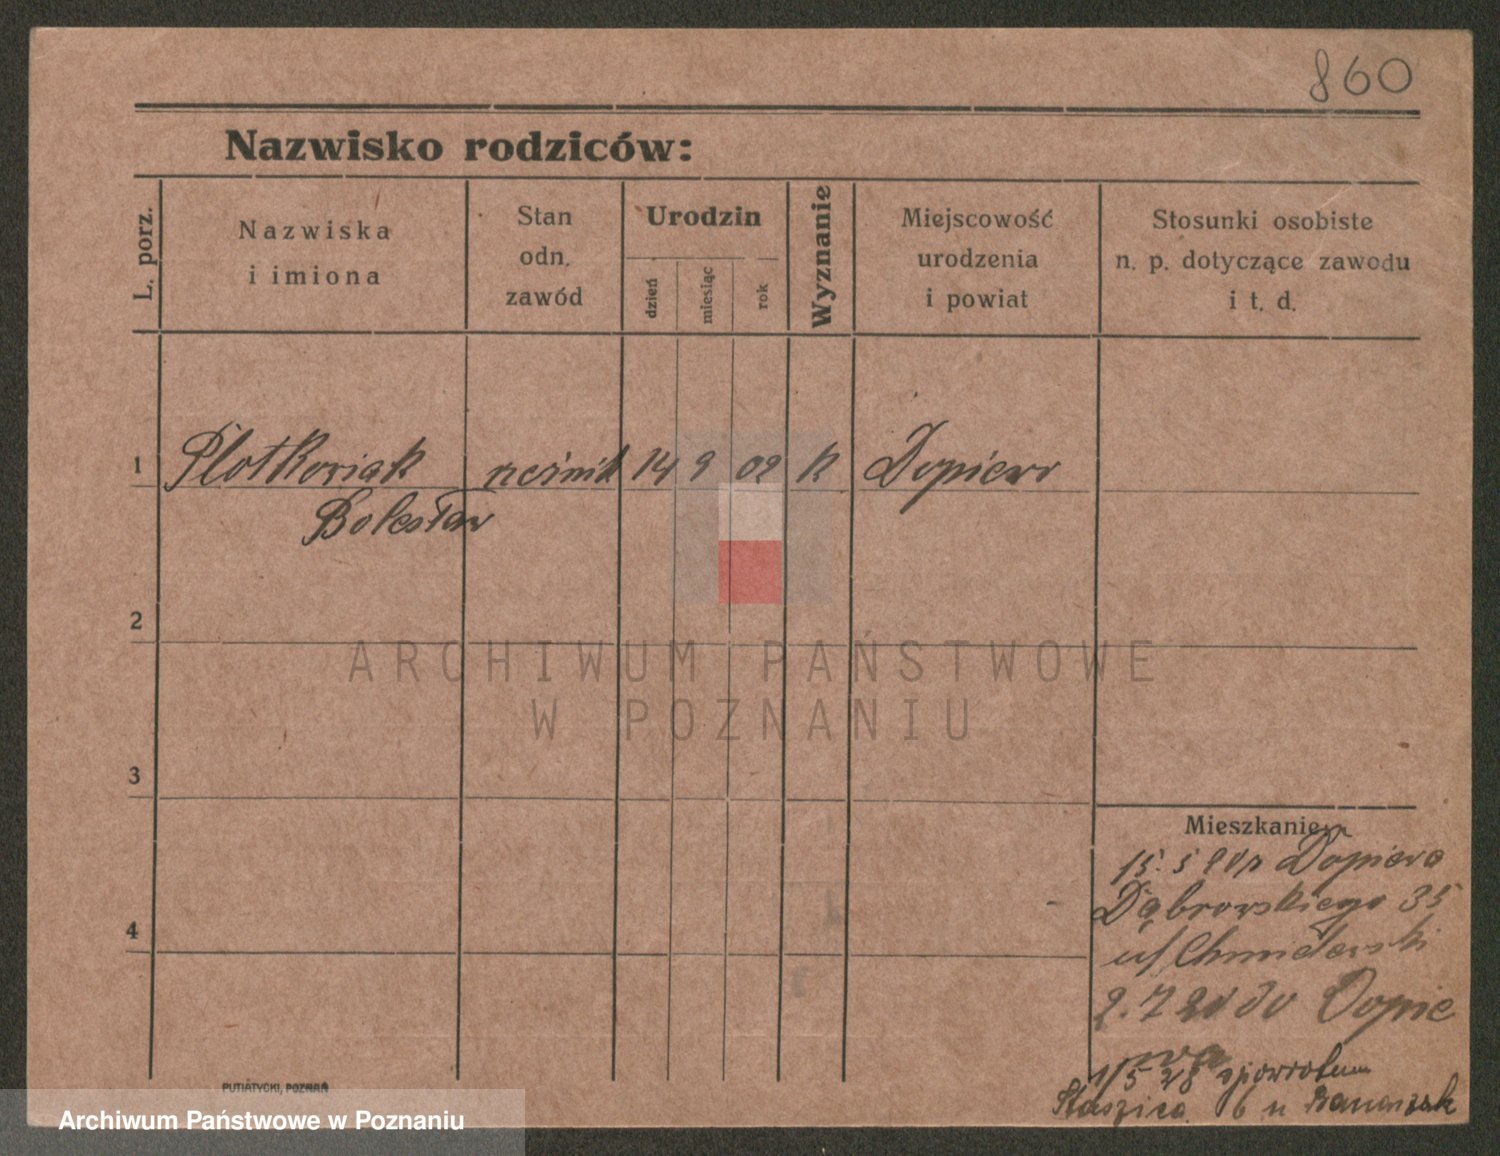 860
Nazwisko rodziców:
L. porz.
Nazwiska
i imiona
Stan
odn.
zawód
Urodzin
dzień
miesiąc
rok
Wyznanie
Miejscowość
urodzenia
i powiat
Stosunki osobiste
n. p. dotyczące zawodu
i t. d.
1 Plotkowiak rzeźnik 14 9 02 k Dopiewo
Bolesław
2
3
4
ARCHIWUM PAŃSTWOWE
W POZNANIU
Mieszkanie
15. 5 Dopiewa
Dąbrowskiego 35
2. 7 Dopie
wa
1/5 28 spowrotem
Staszica 6 u Banaszak
PUTIATYCKI, POZNAŃ
Archiwum Państwowe w Poznaniu